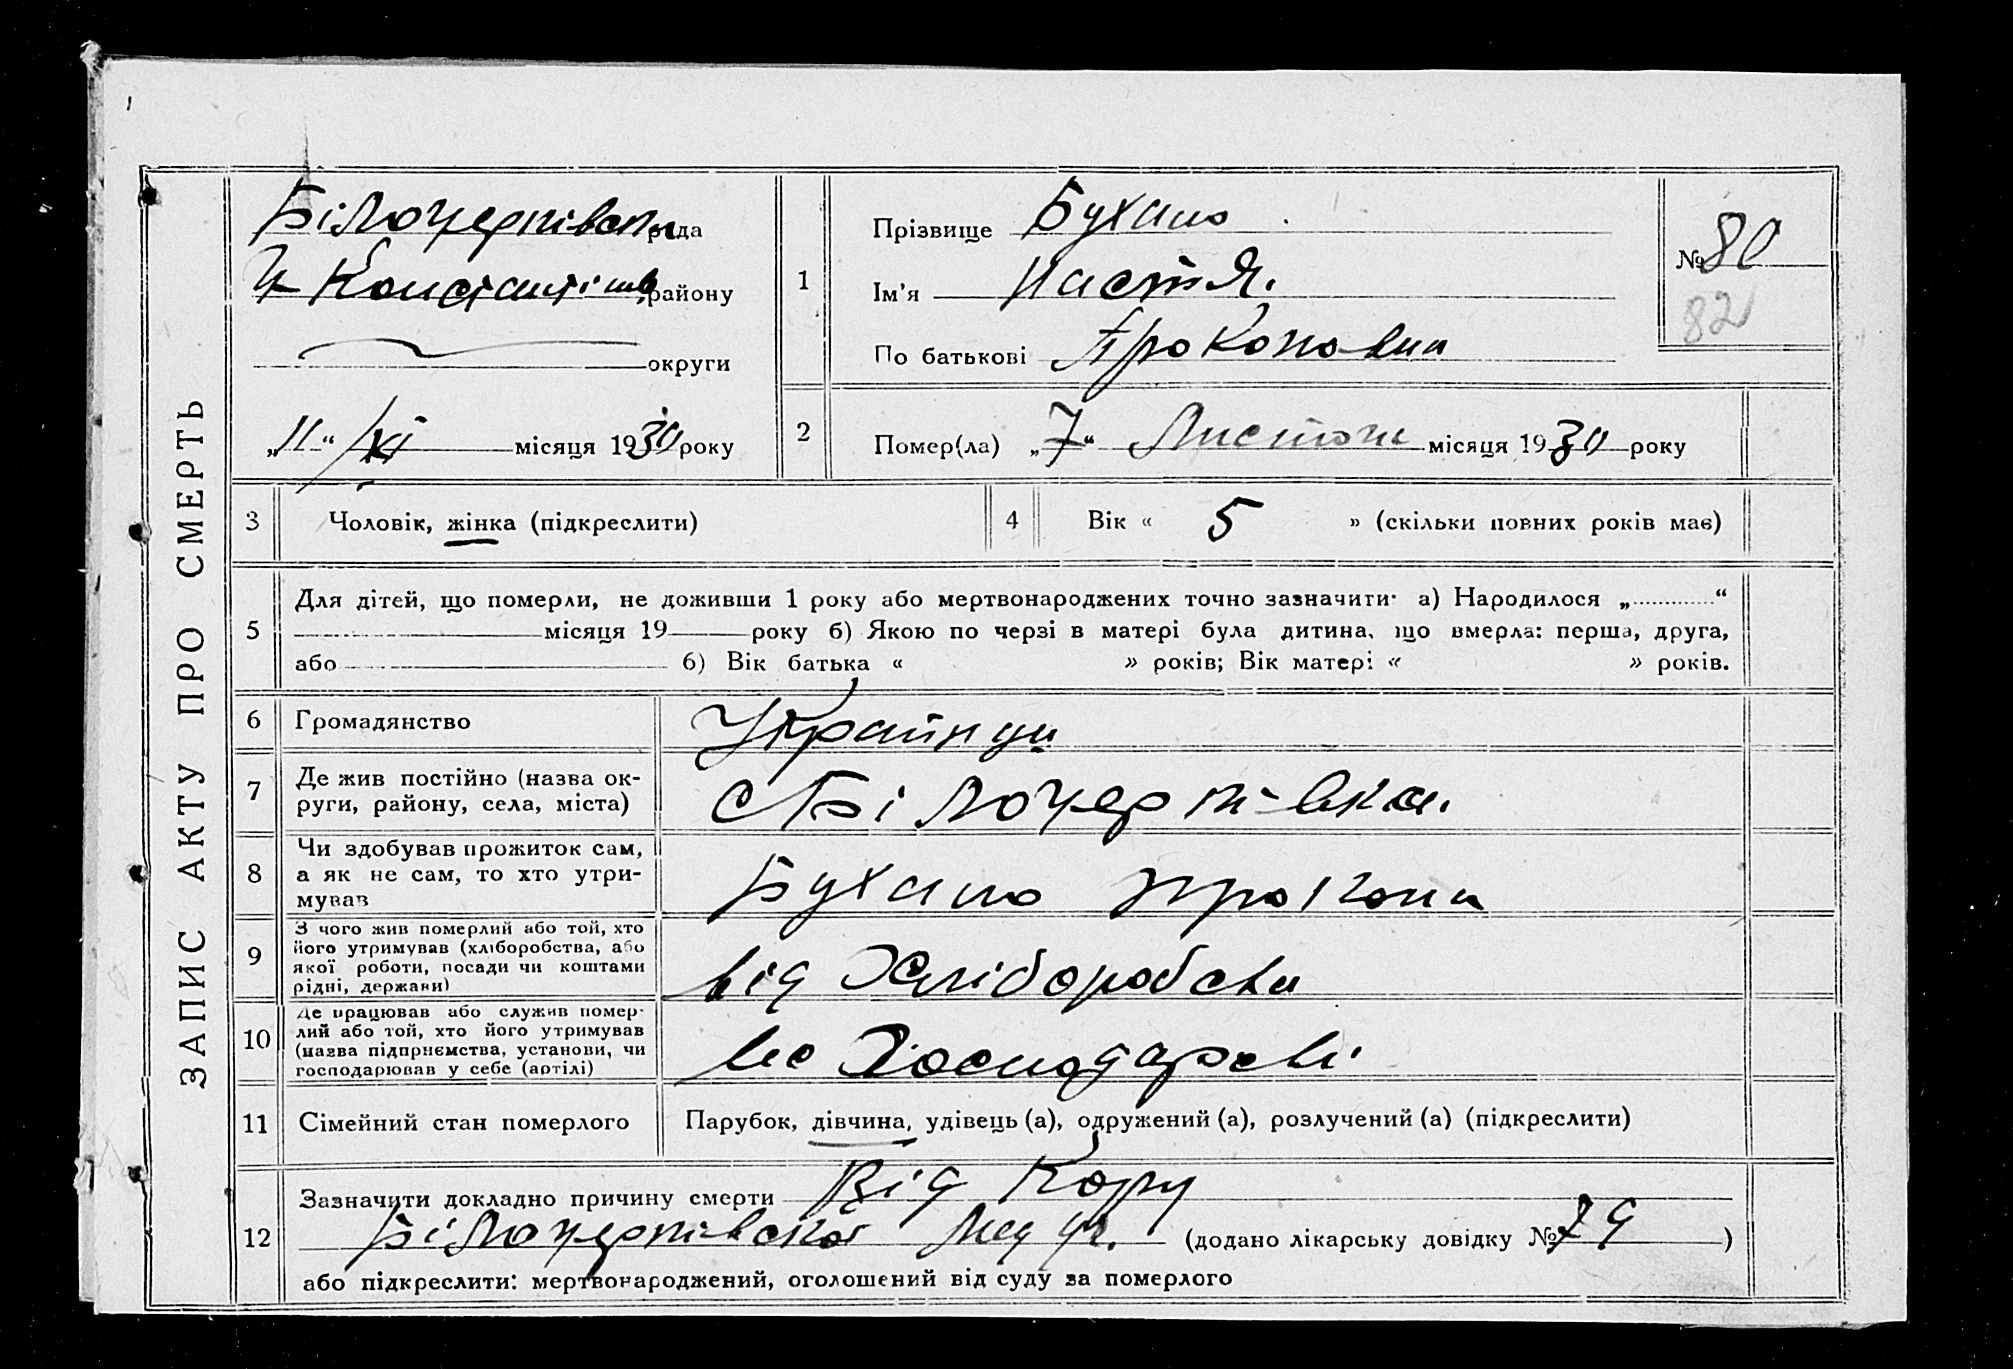 ЗАПИС АКТУ ПРО СМЕРТЬ
Білочерківська рада
району
округи
„11“ XI місяця 1930 року
1
Прізвище Бухало
Ім'я Настя.
По батькові Прокоповна
№ 80
82
2
Помер(ла) „7“ Листопа місяця 1930 року
3 Чоловік, жінка (підкреслити)
4 Вік « 5 » (скільки повних років має)
5
Для дітей, що померли, не доживши 1 року або мертвонароджених точно зазначити· а) Народилося „ “
місяця 19 року б) Якою по черзі в матері була дитина, що вмерла: перша, друга,
або б) Вік батька « » років; Вік матері « » років.
6 Громадянство Українци
7 Де жив постійно (назва ок-
руги, району, села, міста)
с Білочерківка.
8 Чи здобував прожиток сам,
а як не сам, то хто утри-
мував
Бухало Прокопи
9 З чого жив померлий або той, хто
його утримував (хліборобства, або
якої роботи, посади чи коштами
рідні, держави)
від Хліборобсва
10 Де працював або служив помер-
лий або той, хто його утримував
(назва підприємства, установи, чи
господарював у себе (артілі)
Господарсві
11 Сімейний стан померлого Парубок, дівчина, удівець (а), одружений (а), розлучений (а) (підкреслити)
12 Зазначити докладно причину смерти Від Кору
Білочерківской Мед (додано лікарську довідку № 79 )
або підкреслити: мертвонароджений, оголошений від суду за померлого